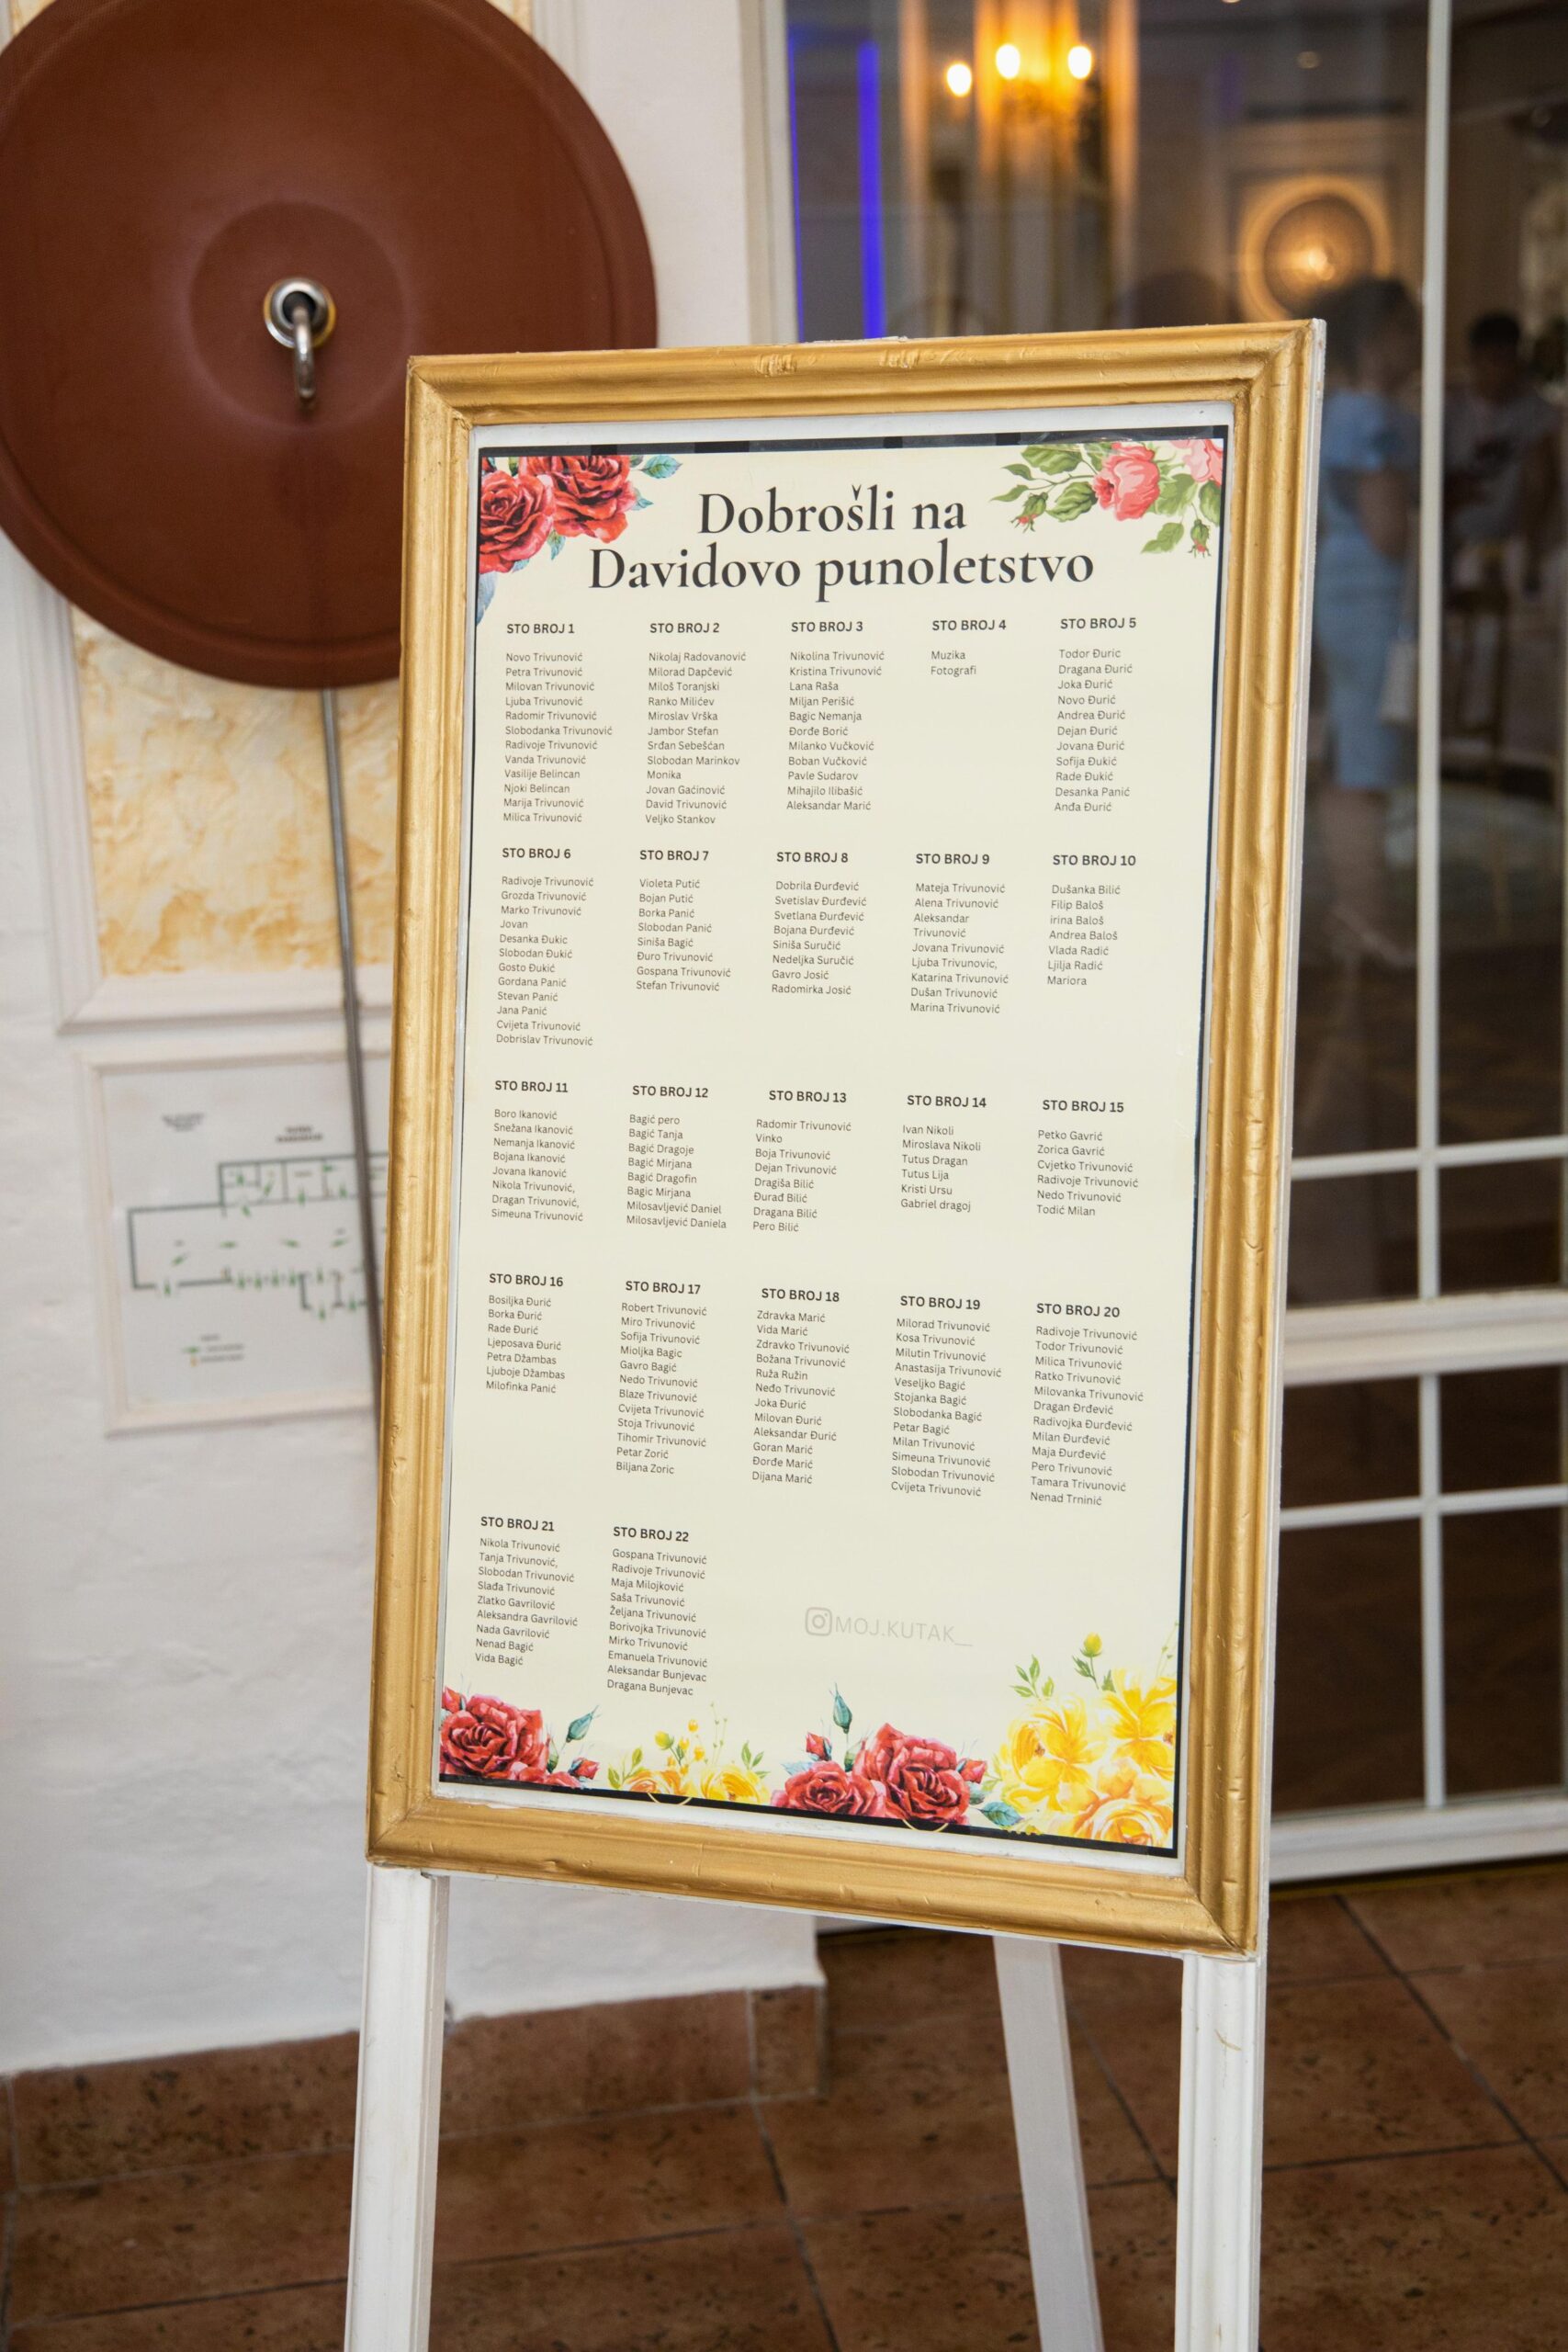 Dobrošli na
Davidovo punoletstvo
STO BROJ 1
Novo Trivunović
Petra Trivunović
Milovan Trivunović
Ljuba Trivunović
Radomir Trivunović
Slobodanka Trivunović
Radivoje Trivunović
Vanda Trivunović
Vasilije Belincan
Njoki Belincan
Marija Trivunović
Milica Trivunović
STO BROJ 2
Nikolaj Radovanović
Milorad Dapčević
Miloš Toranjski
Ranko Milićev
Miroslav Vrška
Jambor Stefan
Srđan Sebešćan
Slobodan Marinkov
Monika
Jovan Gaćinović
David Trivunović
Veljko Stankov
STO BROJ 3
Nikolina Trivunović
Kristina Trivunović
Lana Raša
Miljan Perišić
Bagic Nemanja
Đorđe Borić
Milanko Vučković
Boban Vučković
Pavle Sudarov
Mihajlo Ilibašić
Aleksandar Marić
STO BROJ 4
Muzika
Fotografi
STO BROJ 5
Todor Đuric
Dragana Đurić
Joka Đurić
Novo Đurić
Andrea Đurić
Dejan Đurić
Jovana Đurić
Sofija Đukić
Rade Đukić
Desanka Panić
Anđa Đurić
STO BROJ 6
Radivoje Trivunović
Grozda Trivunović
Marko Trivunović
Jovan
Desanka Đukic
Slobodan Đukić
Gosto Đukić
Gordana Panić
Stevan Panić
Jana Panić
Cvijeta Trivunović
Dobrislav Trivunović
STO BROJ 7
Violeta Putić
Bojan Putić
Borka Panić
Slobodan Panić
Siniša Bagić
Đuro Trivunović
Gospana Trivunović
Stefan Trivunović
STO BROJ 8
Dobrila Đurđević
Svetislav Đurđević
Svetlana Đurđević
Bojana Đurđević
Siniša Suručić
Nedeljka Suručić
Gavro Josić
Radomirka Josić
STO BROJ 9
Mateja Trivunović
Alena Trivunović
Aleksandar
Trivunović
Jovana Trivunović
Ljuba Trivunovic,
Katarina Trivunović
Dušan Trivunović
Marina Trivunović
STO BROJ 10
Dušanka Bilić
Filip Baloš
irina Baloš
Andrea Baloš
Vlada Radić
Ljilja Radić
Mariora
STO BROJ 11
Boro Ikanović
Snežana Ikanović
Nemanja Ikanović
Bojana Ikanović
Jovana Ikanović
Nikola Trivunović,
Dragan Trivunović,
Simeuna Trivunović
STO BROJ 12
Bagić pero
Bagić Tanja
Bagić Dragoje
Bagić Mirjana
Bagić Dragofin
Bagic Mirjana
Milosavljević Daniel
Milosavljević Daniela
STO BROJ 13
Radomir Trivunović
Vinko
Boja Trivunović
Dejan Trivunović
Dragiša Bilić
Đurađ Bilić
Dragana Bilić
Pero Bilić
STO BROJ 14
Ivan Nikoli
Miroslava Nikoli
Tutus Dragan
Tutus Lija
Kristi Ursu
Gabriel dragoj
STO BROJ 15
Petko Gavrić
Zorica Gavrić
Cvjetko Trivunović
Radivoje Trivunović
Nedo Trivunović
Todić Milan
STO BROJ 16
Bosiljka Đurić
Borka Đurić
Rade Đurić
Ljeposava Đurić
Petra Džambas
Ljuboje Džambas
Milofinka Panić
STO BROJ 17
Robert Trivunović
Miro Trivunović
Sofija Trivunović
Mioljka Bagic
Gavro Bagić
Nedo Trivunović
Blaze Trivunović
Cvijeta Trivunović
Stoja Trivunović
Tihomir Trivunović
Petar Zorić
Biljana Zoric
STO BROJ 18
Zdravka Marić
Vida Marić
Zdravko Trivunović
Božana Trivunović
Ruža Ružin
Neđo Trivunović
Joka Đurić
Milovan Đurić
Aleksandar Đurić
Goran Marić
Đorđe Marić
Dijana Marić
STO BROJ 19
Milorad Trivunović
Kosa Trivunović
Milutin Trivunović
Anastasija Trivunović
Veseljko Bagić
Stojanka Bagić
Slobodanka Bagić
Petar Bagić
Milan Trivunović
Simeuna Trivunović
Slobodan Trivunović
Cvijeta Trivunović
STO BROJ 20
Radivoje Trivunović
Todor Trivunović
Milica Trivunović
Ratko Trivunović
Milovanka Trivunović
Dragan Đrđević
Radivojka Đurđević
Milan Đurđević
Maja Đurđević
Pero Trivunović
Tamara Trivunović
Nenad Trninić
STO BROJ 21
Nikola Trivunović
Tanja Trivunović,
Slobodan Trivunović
Slađa Trivunović
Zlatko Gavrilović
Aleksandra Gavrilović
Nada Gavrilović
Nenad Bagić
Vida Bagić
STO BROJ 22
Gospana Trivunović
Radivoje Trivunović
Maja Milojković
Saša Trivunović
Željana Trivunović
Borivojka Trivunović
Mirko Trivunović
Emanuela Trivunović
Aleksandar Bunjevac
Dragana Bunjevac
MOJ.KUTAK_